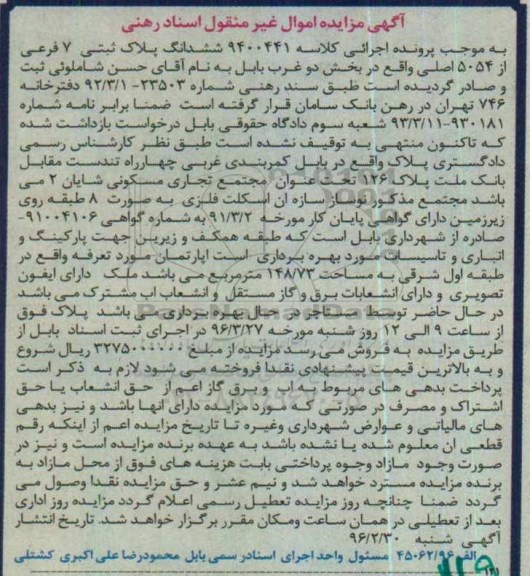 آگهی مزایده اموال غیر منقول اسناد رهنی
به موجب پرونده اجرائی کلاسه ۹۴۰۰۴۴۱ ششدانگ پلاک ثبتی ۷ فرعی
از ۵۰۵۴ اصلی واقع در بخش دو غرب بابل به نام آقای حسن شاملوئی ثبت
و صادر گردیده است طبق سند رهنی شماره ۲۳۵۰۳- ۹۲/۳/۱ دفترخانه
۷۴۶ تهران در رهن بانک سامان قرار گرفته است ضمنا برابر نامه شماره
۹۳۰۱۸۱-۹۳/۳/۱۱ شعبه سوم دادگاه حقوقی بابل درخواست بازداشت شده
که تاکنون منتهی به توقیف نشده است طبق نظر کارشناس رسمی
دادگستری پلاک واقع در بابل کمربندی غربی چهارراه تندست مقابل
بانک ملت پلاک ۱۲۶ تحت عنوان مجتمع تجاری مسکونی شایان ۲ می
باشد مجتمع مذکور نوساز سازه ان اسکلت فلزی به صورت ۸ طبقه روی
زیرزمین دارای گواهی پایان کار مورخه ۹۱/۳/۲ به شماره گواهی ۹۱۰۰۴۱۰۶-
صادره از شهرداری بابل است که طبقه همکف و زیرین جهت پارکینگ و
انباری و تاسیسات مورد بهره برداری است اپارتمان مورد تعرفه واقع در
طبقه اول شرقی به مساحت ۱۴۸/۷۳ مترمربع می باشد ملک دارای ایفون
تصویری و دارای انشعابات برق و گاز مستقل و انشعاب اب مشترک می باشد
در حال حاضر توسط مستاجر در حال بهره برداری می باشد پلاک فوق
از ساعت ۹ الی ۱۲ روز شنبه مورخه ۹۶/۳/۲۷ در اجرای ثبت اسناد بابل از
طریق مزایده به فروش می رسد مزایده از مبلغ ۳۲۷۵۰۰۰۰۰۰ ریال شروع
و به بالاترین قیمت پیشنهادی نقدا فروخته می شود لازم به ذکر است
پرداخت بدهی های مربوط به اب و برق گاز اعم از حق انشعاب یا حق
اشتراک و مصرف در صورتی که مورد مزایده دارای آنها باشد و نیز بدهی
های مالیاتی و عوارض شهرداری وغیره تا تاریخ مزایده اعم از اینکه رقم
قطعی ان معلوم شده یا نشده باشد به عهده برنده مزایده است و نیز در
صورت وجود مازاد وجوه پرداختی بابت هزینه های فوق از محل مازاد به
برنده مزایده مسترد خواهد شد و نیم عشر و حق مزایده نقدا وصول می
گردد ضمنا چنانچه روز مزایده تعطیل رسمی اعلام گردد مزایده روز اداری
بعد از تعطیلی در همان ساعت ومکان مقرر برگزار خواهد شد. تاریخ انتشار
آگهی شنبه ۹۶/۲/۳۰
الف ۴۵۰۶۲/۹۶ مسئول واحد اجرای اسنادرسمی بابل محمودرضا علی اکبری کشتلی